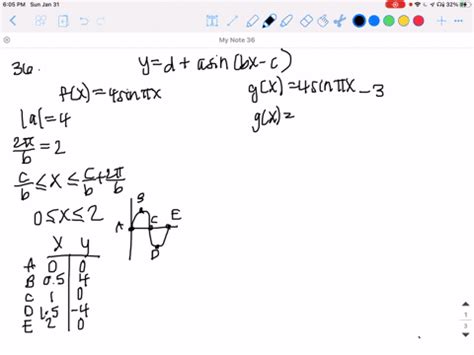 6:05 PM Sun Jan 31
32%
My Note 36
36.
y=d+asin(bx-c)
f(x)=4sinπx
g(x)=4sinπx-3
|a|=4
g(x)=
2π/b=2
c/b≤x≤c/b+2π/b
0≤x≤2
A B C D E
x y
A 0 0
B 0.5 4
C 1 0
D 1.5 -4
E 2 0
1
3